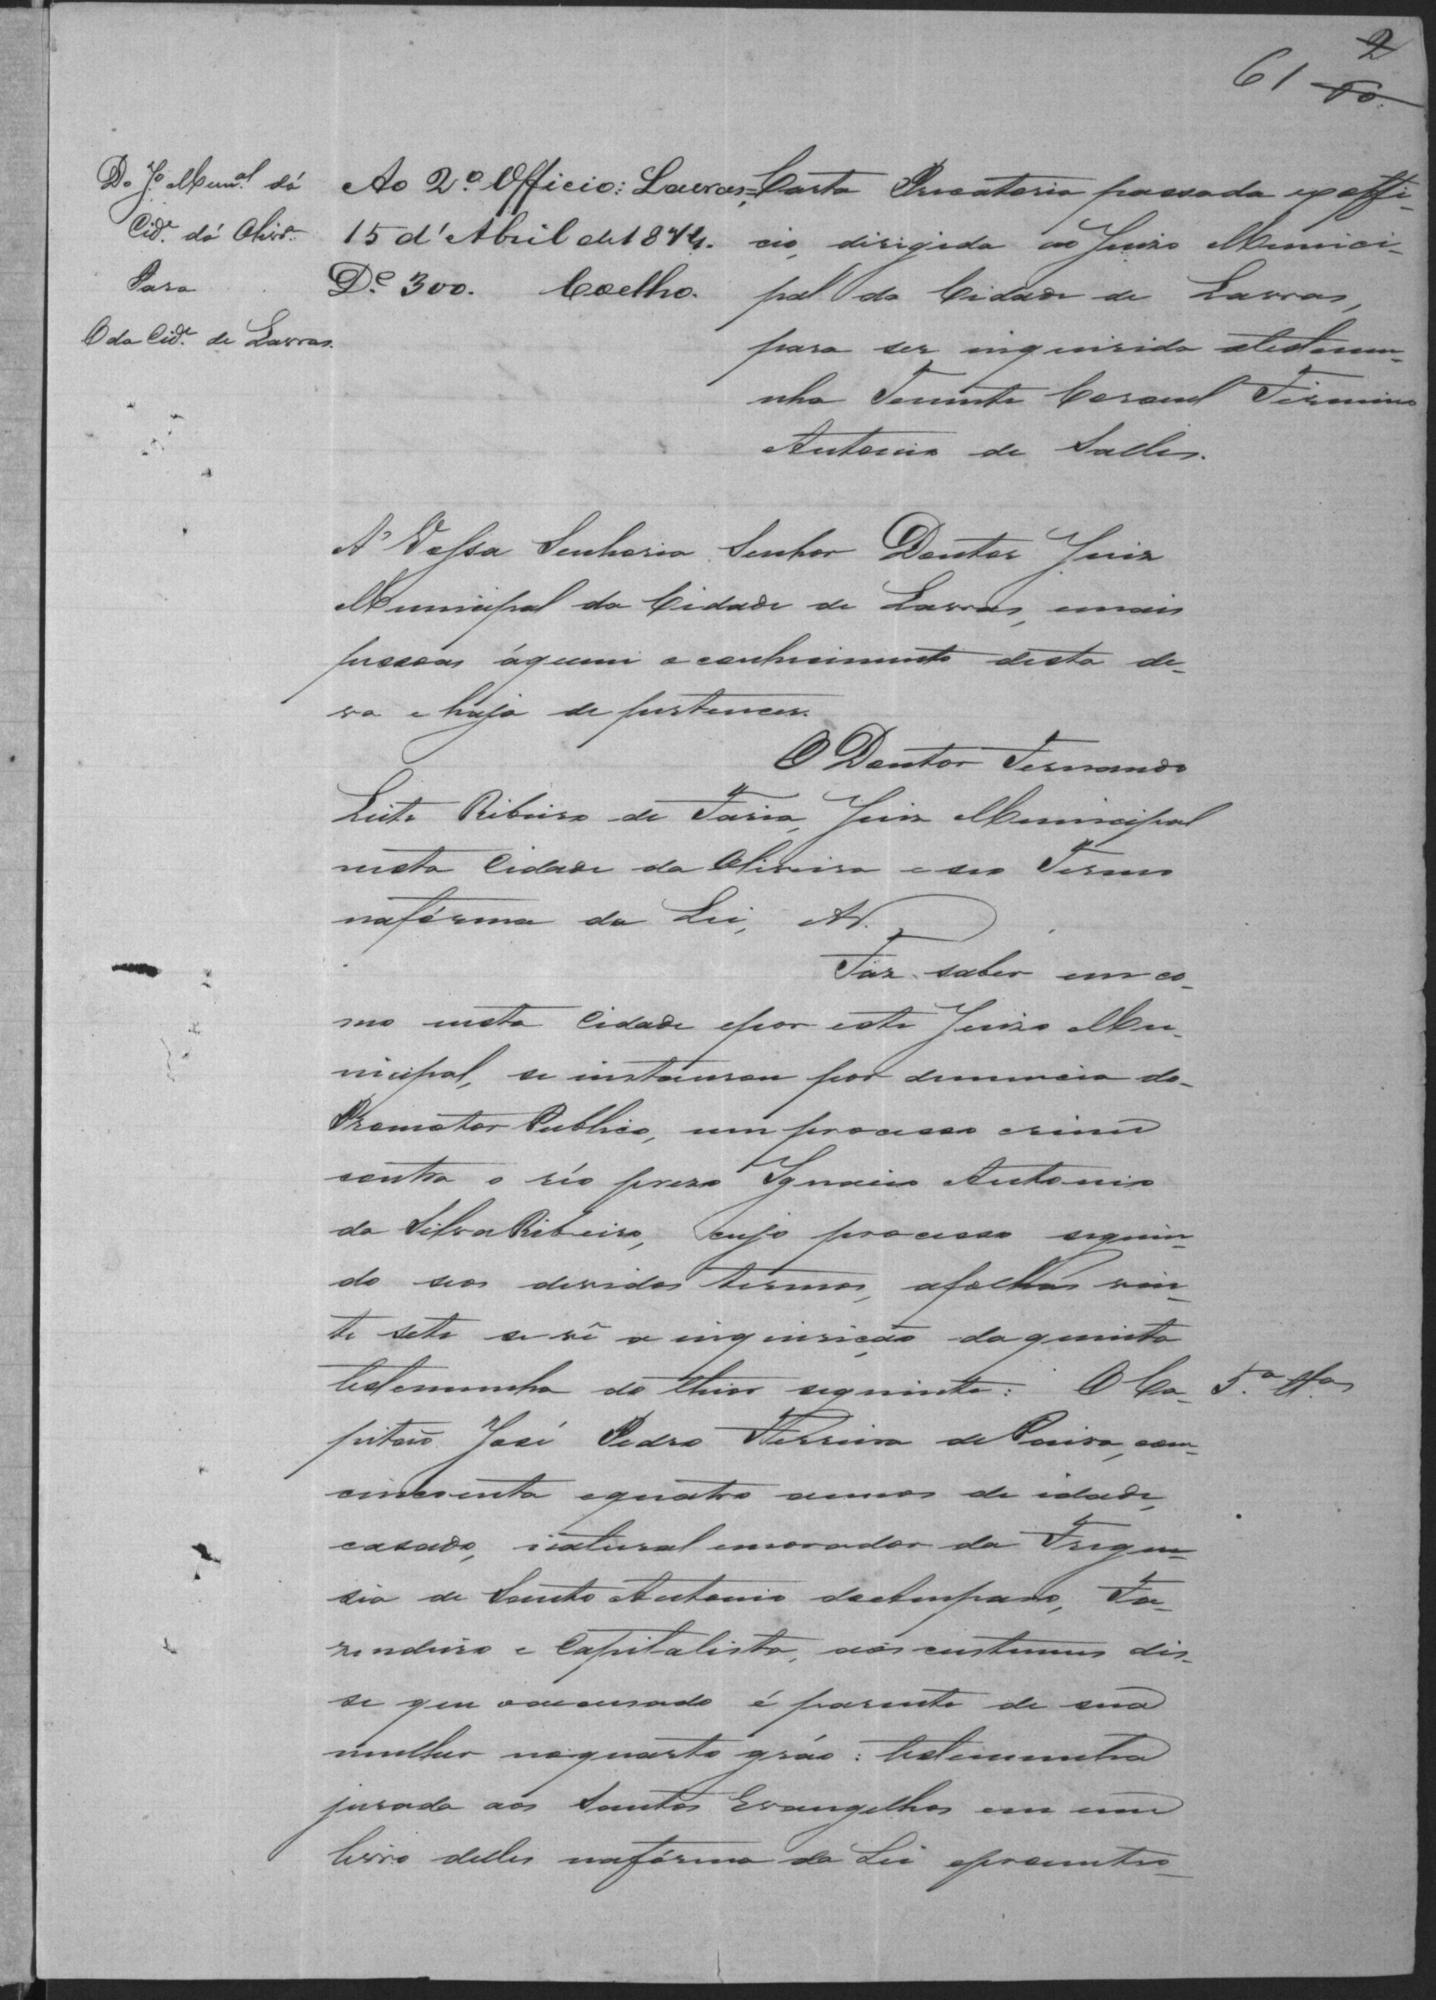 2
61 60.
Do Jº. Mun.al dá
Cid.e dá Olivr.ª
Para
O da Cid.e de Lavras.
Ao 2.º Officio: Lavras,
15 d'Abril de 1874.
D.e 300. Coelho.
Carta Precatoria passada ex offi-
cio, dirigida ao Juizo Munici-
pal da Cidade de Lavras,
para ser inquirida atestemu-
nha Tenente Coronel Firmino
Antonio de Salles.
A' Vossa Senhoria Senhor Doutor Juiz
Municipal da Cidade de Lavras, emais
pessoas áquem o conhecimento desta de-
va e haja de pertencer.
O Doutor Fernando
Leite Ribeiro de Faria, Juiz Municipal
nesta Cidade da Oliveira e seo Termo
nafórma da Lei,
Faz saber em co-
mo nesta Cidade epor este Juizo Mu-
nicipal, se instaurou por denuncia do
Promotor Publico, um processo crime
contra o réo prezo Ignacio Antonio
da Silva Ribeiro, cujo processo seguin-
do seos devidos termos, afolhas vin-
te sete se vê a inquirição da quinta
testemunha do theor seguinte: O Ca-
5.ª tt.ª
pitão José Pedro Ferreira de Paiva, com
cincoenta equatro annos de idade,
casado, natural emorador da Fregue-
sia de Santo Antonio do Amparo, Fa-
zendeiro e Capitalista, aos custumes dis-
se que oaccusado é parente de sua
mulher noquarto gráo: testemunha
jurada aos Santos Evangelhos em um
livro delles nafórma da Lei eprometeo